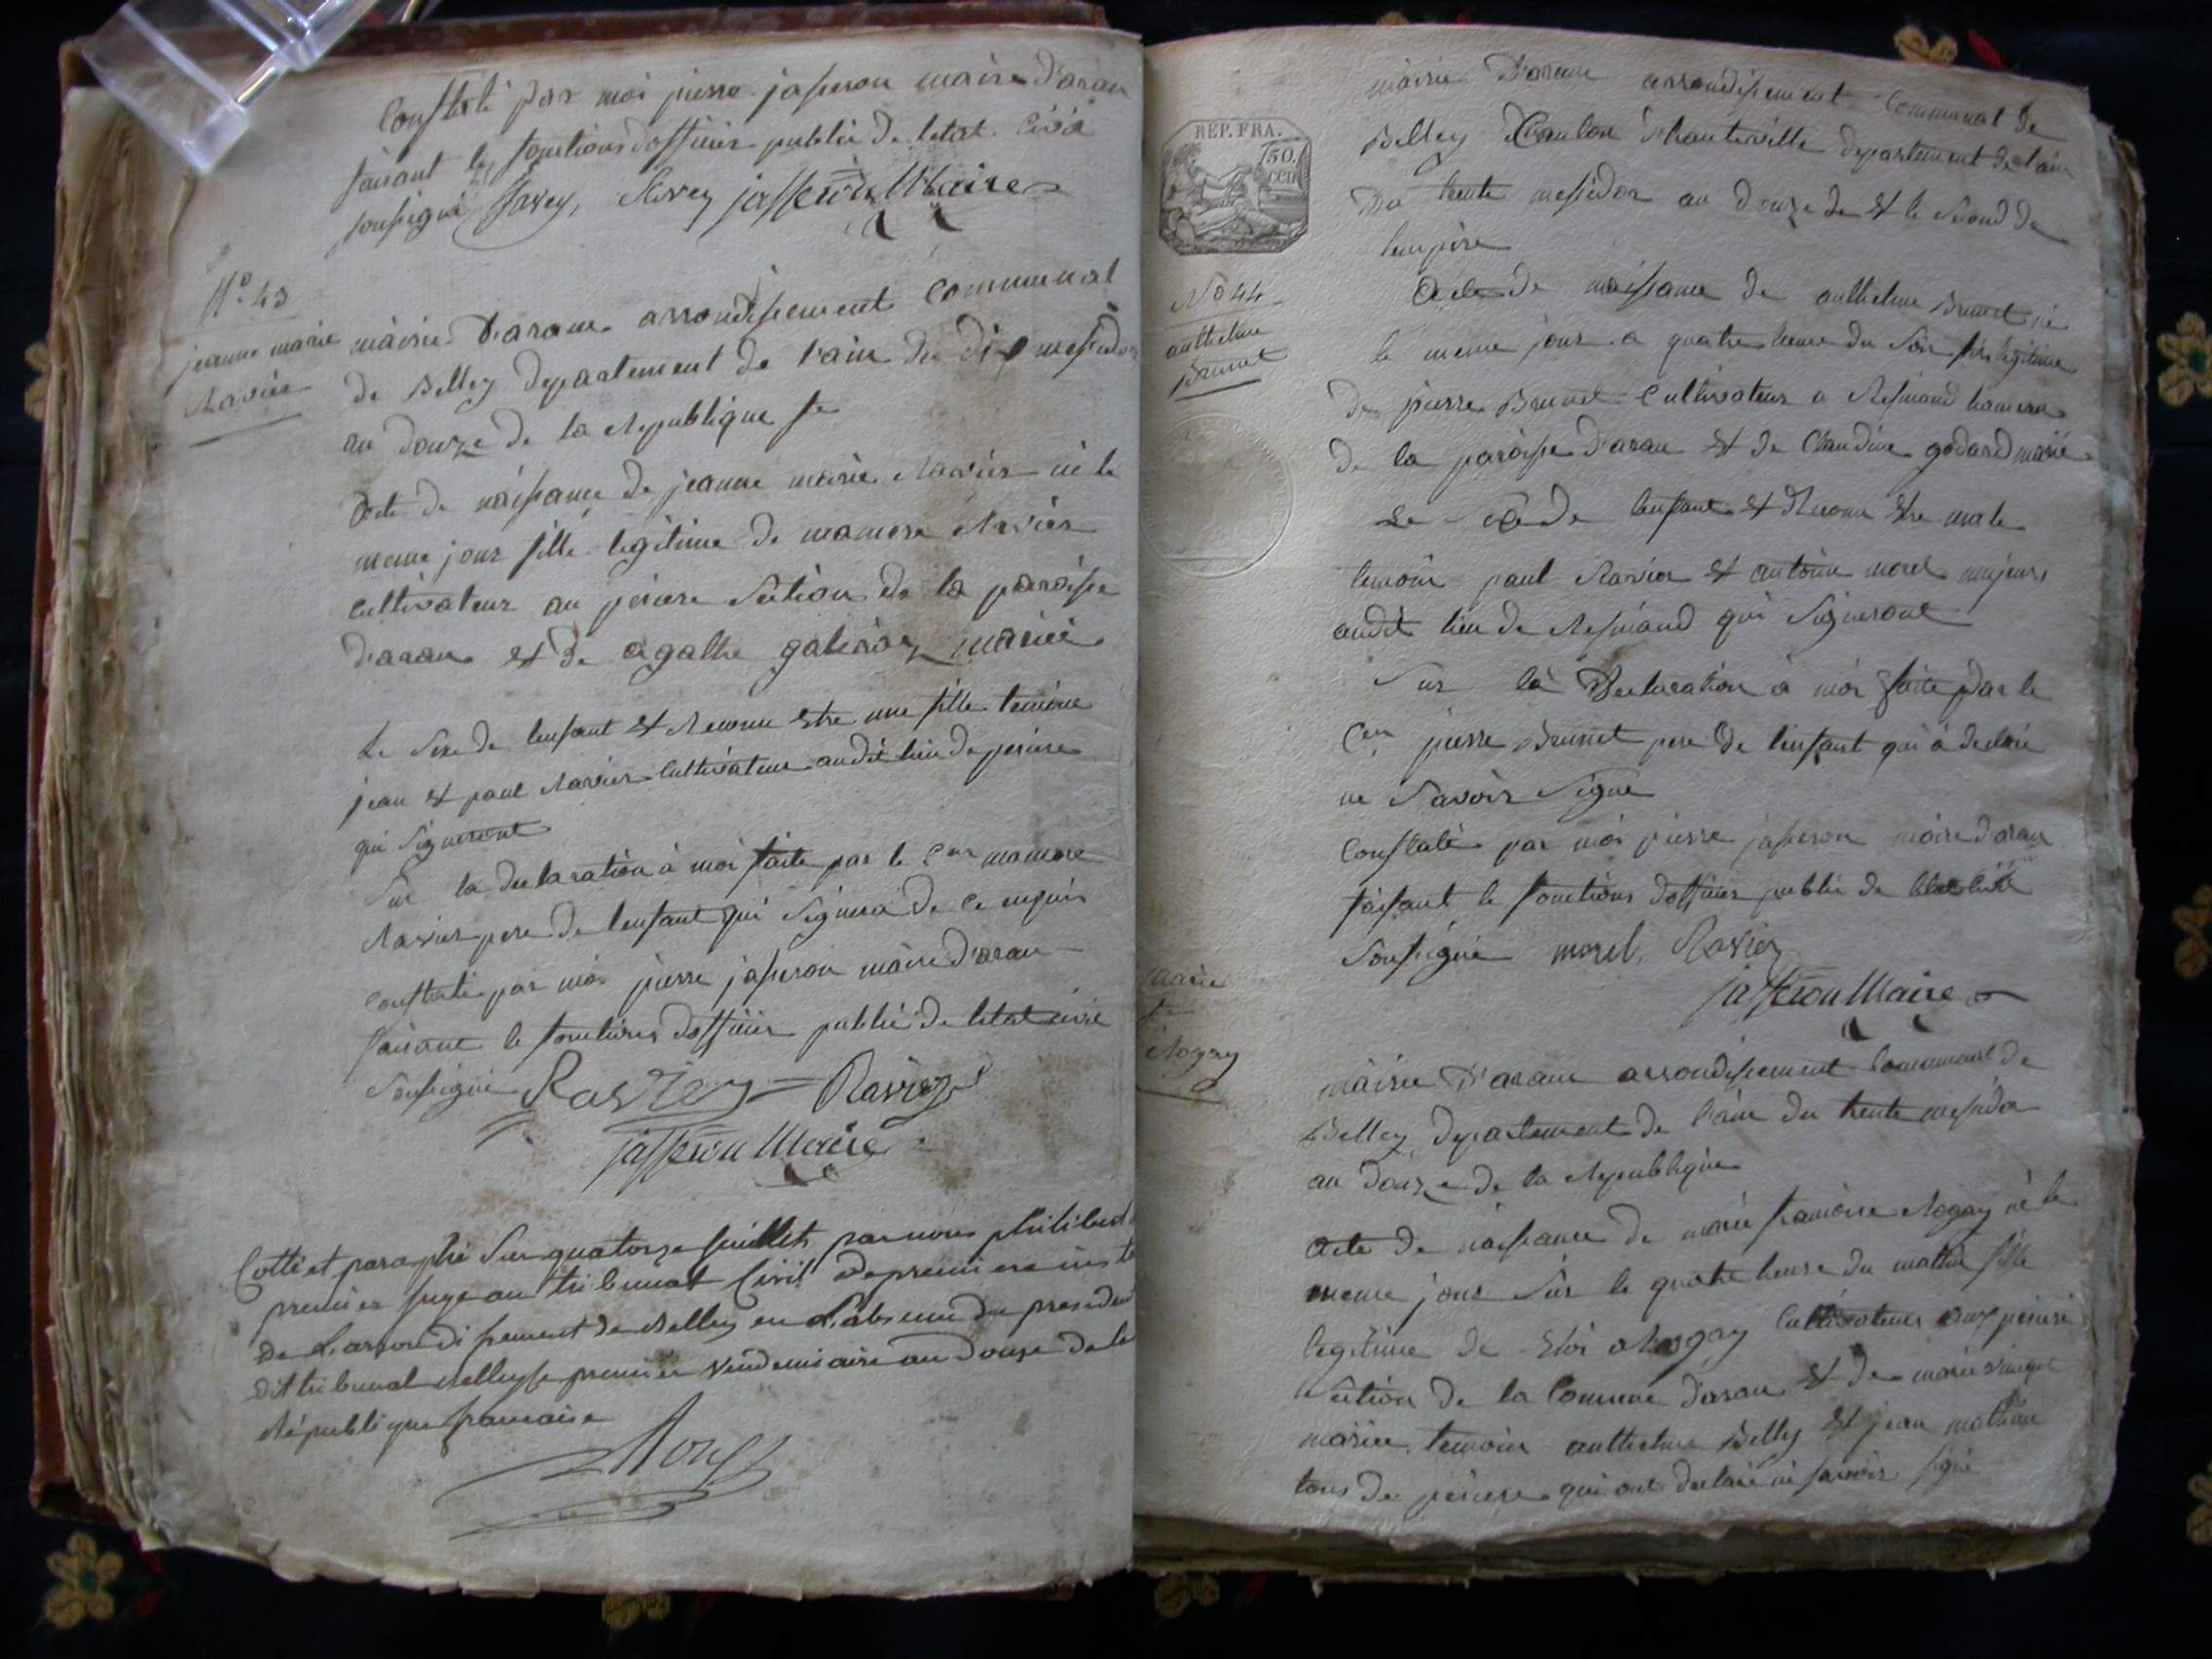 Constaté par moi pierre jasseron maire d'aran
faisant les fonctions dofficier public de letat civil
soussigné Savey, Rivey jasseron Maire
N° 43
jeanne marie
Ravier
mairie d'aranc arrondissement communal
de Belley departement de l'ain du dix messidor
an douze de la Republique fe
acte de naissance de jeanne marie Ravier né le
meme jour fille legitime de mamere Ravier
cultivateur au section de la paroisse
d'aran et de agathe mariée
Le sexe de lenfant et Reconnu estre une fille temoins
jean et paul Ravier cultivateur audit lieu de
qui signeront
Sur la declaration à moi faite par le Cen mamere
Ravier pere de lenfant qui signera de ce requis
constaté par moi pierre jasseron maire d'aran
faisant le fonctions dofficier public de letat civil
soussigné Ravier Ravier
jasseron Maire
Cotté et paraphé sur quatorze feuillets par nous philibert
premier juge au tribunal Civil de premiere inst
de L'arrondissement de Belley en L'absence du president
dit tribunal Belley le premier vendemiaire an Douze de la
République francaise
REP. FRA.
50.
cen
mairie d'aranc arrondissement communal de
Belley Canton d'hauteville departement de l'ain
Du trente messidor an douze de et le second de
lempire
N° 44
anthelme
Brunet
acte de naissance de anthelme Brunet né
le meme jour a quatre heure du soir fils legitime
de pierre Brunet cultivateur a Resinand hameau
de la paroisse d'aran et de Claudine godard marié
Le sexe de lenfant et Reconu estre male
temoin paul Ravier et antoine morel majeurs
audit lieu de Resinand qui signeront
Sur la Declaration à moi faite par le
Cen pierre Brunet pere de lenfant qui à declaré
ne savoir signé
Constaté par moi pierre jasseron maire d'aran
faisant le fonctions dofficier public de letat civil
soussigné morel, Ravier
jasseron Maire
marie
fse
Rogay
mairie d'aranc arrondissement communal de
Belley departement de l'ain du trente messidor
an douze de la Republique
acte de naissance de marie francoise Rogay né le
meme jour sur le quatre heure du matin fille
legitime de Eloi Rogay Cultivateur aux
section de la Comune d'aran et de marie
mariée, temoin anthelme Belly et jean
tous de qui ont declaré ne savoir signé